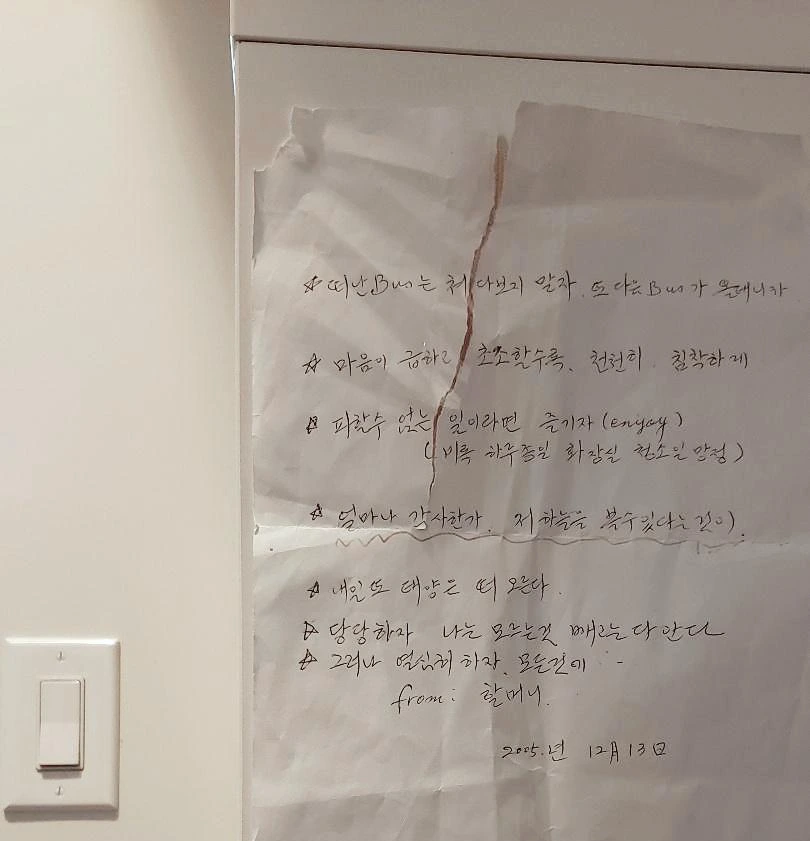 ☆ 떠난Bus는 쳐다보지 말자. 또 다음 Bus가 올테니까
☆ 마음이 급하고 초조할수록, 천천히. 침착하게
☆ 피할수 없는 일이라면 즐기자 (enjoy)
(비록 하루종일 화장실 청소일망정)
☆ 얼마나 감사한가. 저 하늘을 볼수있다는것이.
☆ 내일또 태양은 떠 오른다.
☆ 당당하자 나는 모르는것 빼고는 다 안다
☆ 그러나 열심히 하자. 모든것에 . -
from: 할머니.
2005.년 12月 13日